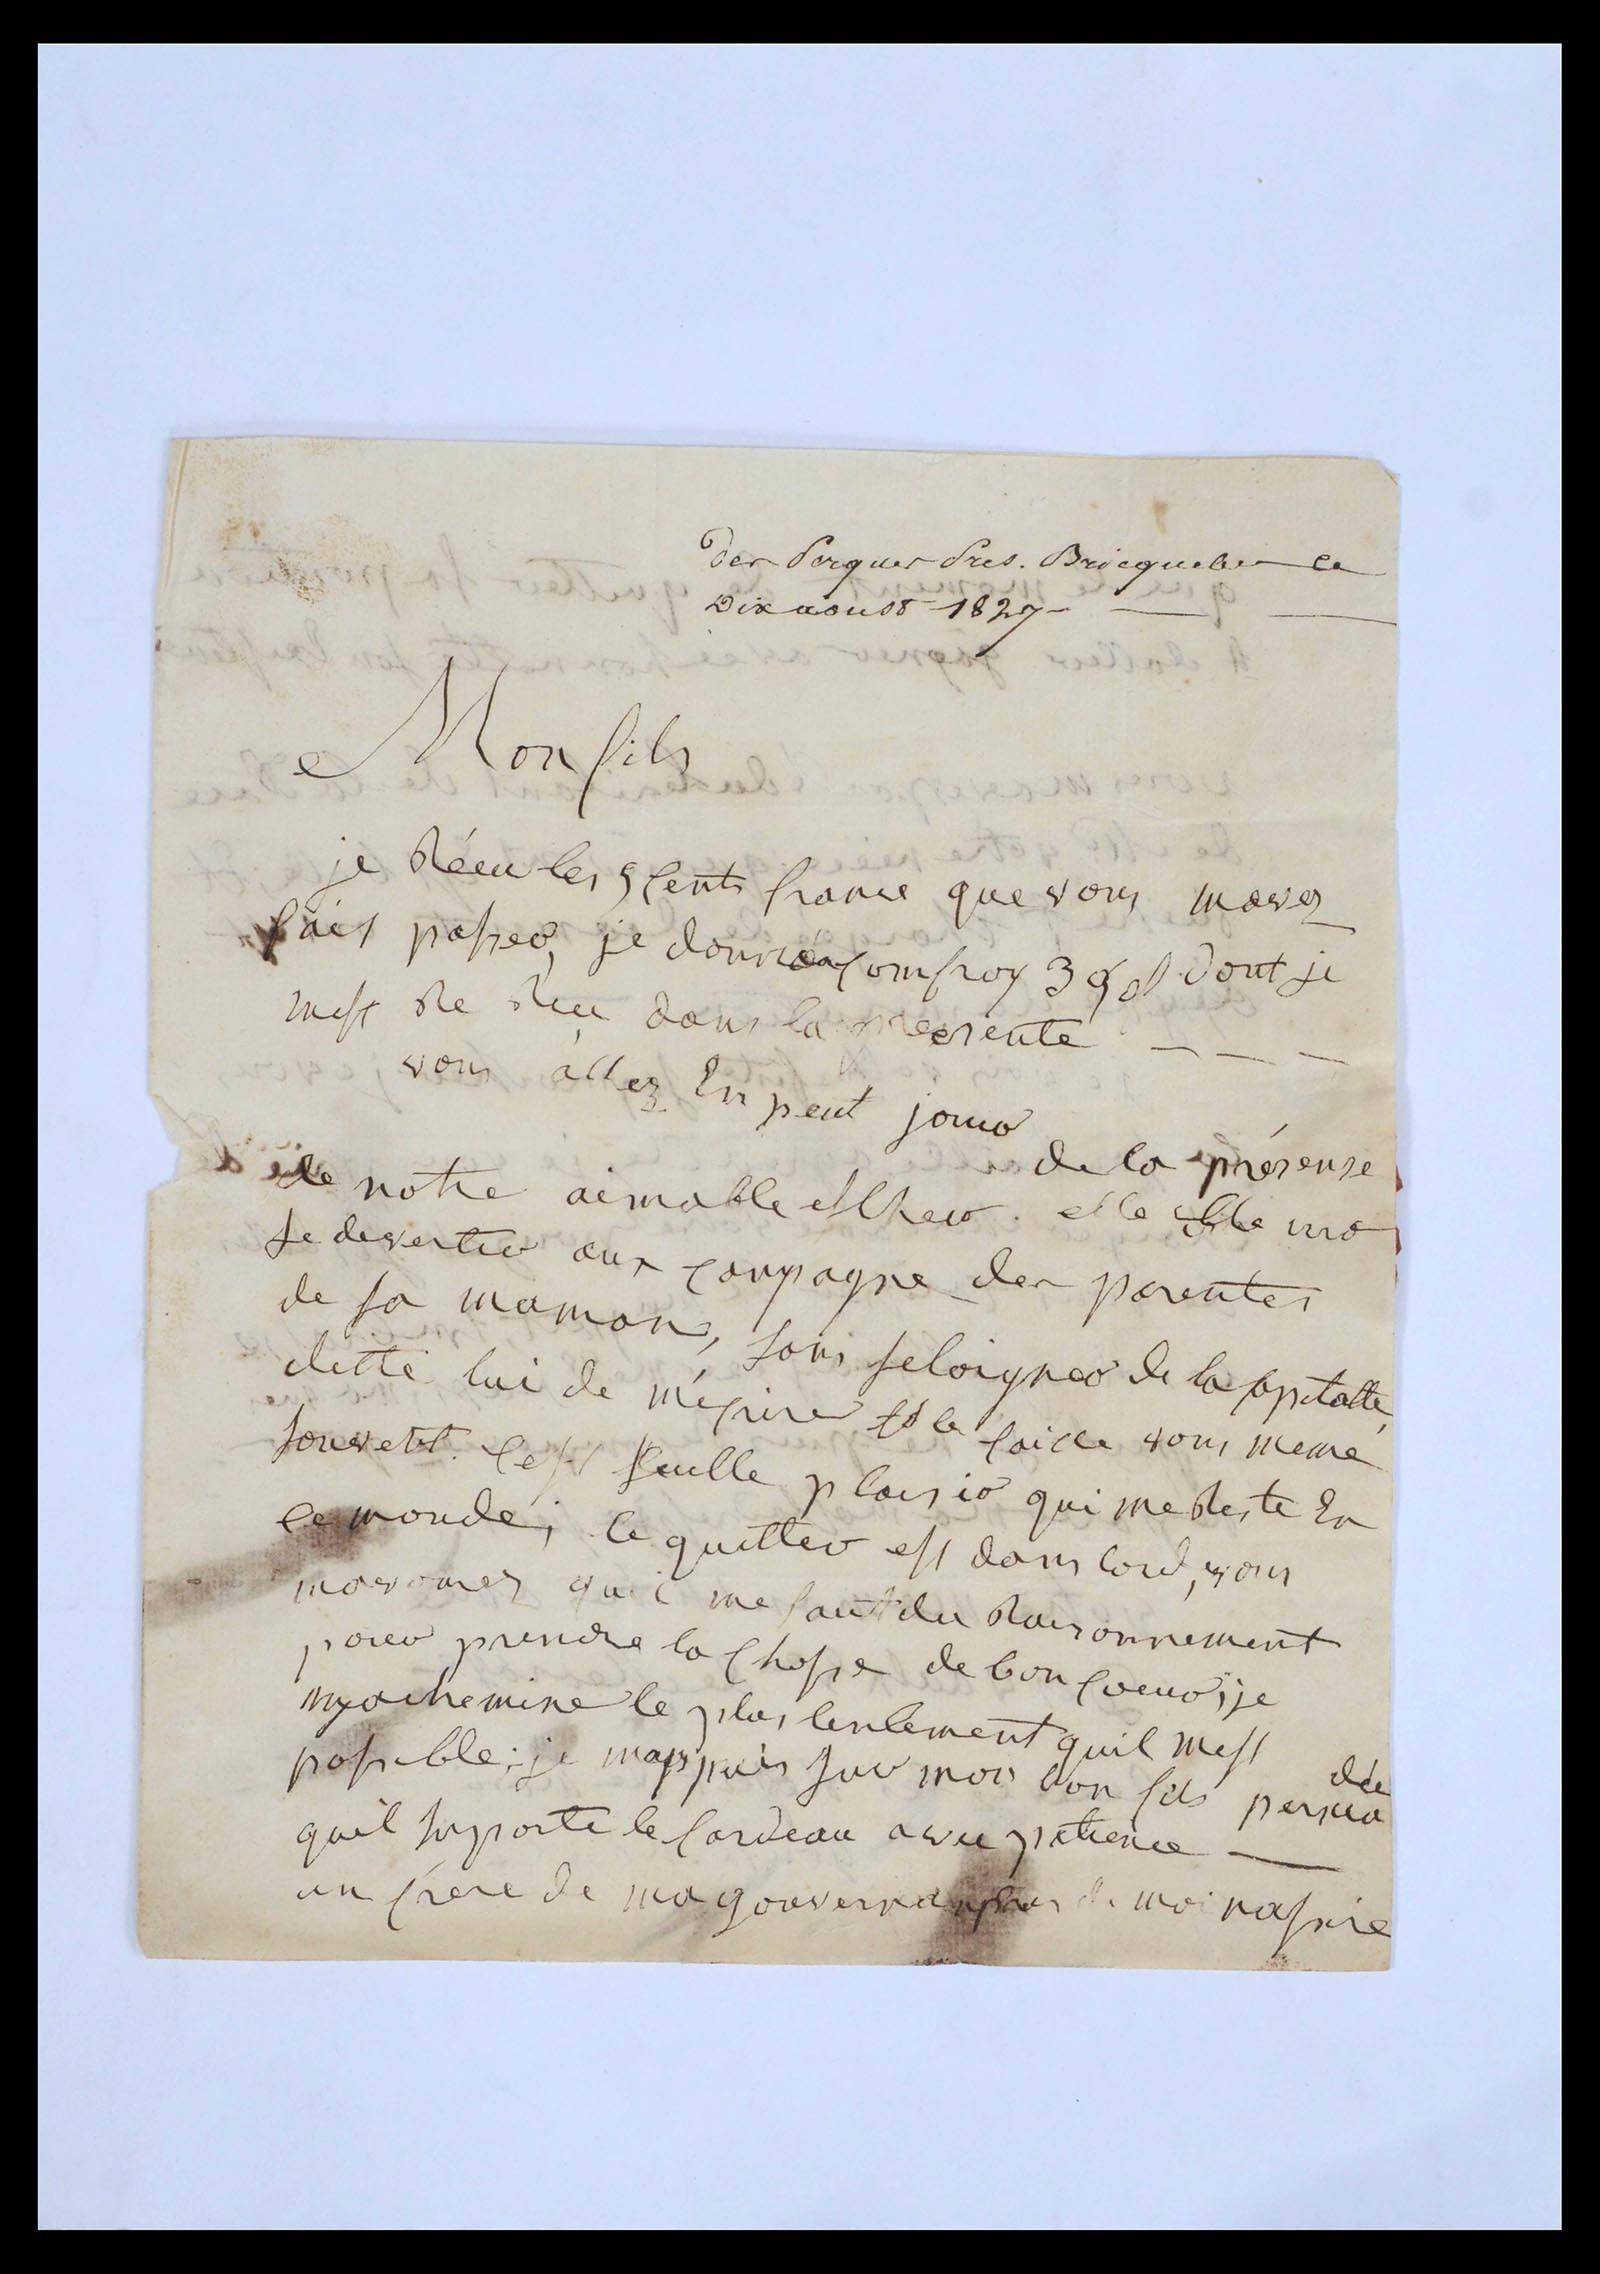 Des Perques Pres. Bricquebec ce
Dix aoust 1827
Monfils
je Réeu les 5 cents franse que vous mavez
fait passer, je donné a Comfroy 39 dont je
mest Re Reu dans la presente
vous àllez En peut jouir
de la présense
de notre aimable esther. elle elle ira
se devertir aux Compagne des parentes
de sa maman, sans seloigner de la Capitalle,
dette lui de mécrire et le faitte vous meme
souvent. Cest seulle plaisir qui me Reste En
ce monde, le quitter est dans lord, vous
mavourez qui me faut du Raisonnement
pour prendre la Chosse de bon Coeur, je
myachemine le plus lentement quil mest
possible; je mappuis sur mon bon fils persuadée
quil suporte le fardeau avec patience
un frere de ma gouvernan de moi nassire